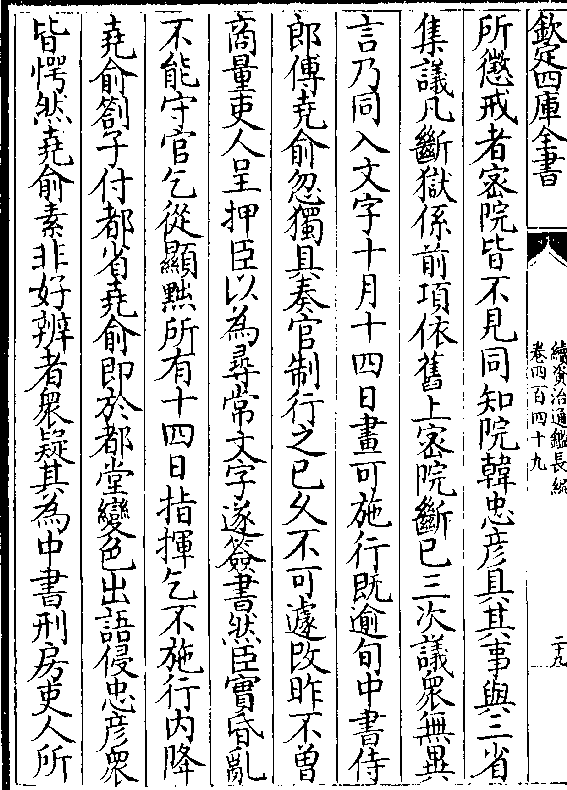 欽定四庫全書
續資治通鑑長編
卷四百四十九
二九
所懲戒者密院皆不見同知院韓忠彦具其事與三省
集議凡斷獄係前項依舊上密院斷已三次議衆無異
言乃同入文字十月十四日畫可施行既逾旬中書侍
郎傅堯俞忽獨具奏官制行之已久不可遽改昨不曾
商量吏人呈押臣以為尋常文字遂簽書然臣實昏亂
不能守官乞從顯黜所有十四日指揮乞不施行内降
堯俞劄子付都省堯俞即於都堂變色出語侵忠彦衆
皆愕然堯俞素非好辨者衆疑其為中書刑房吏人所